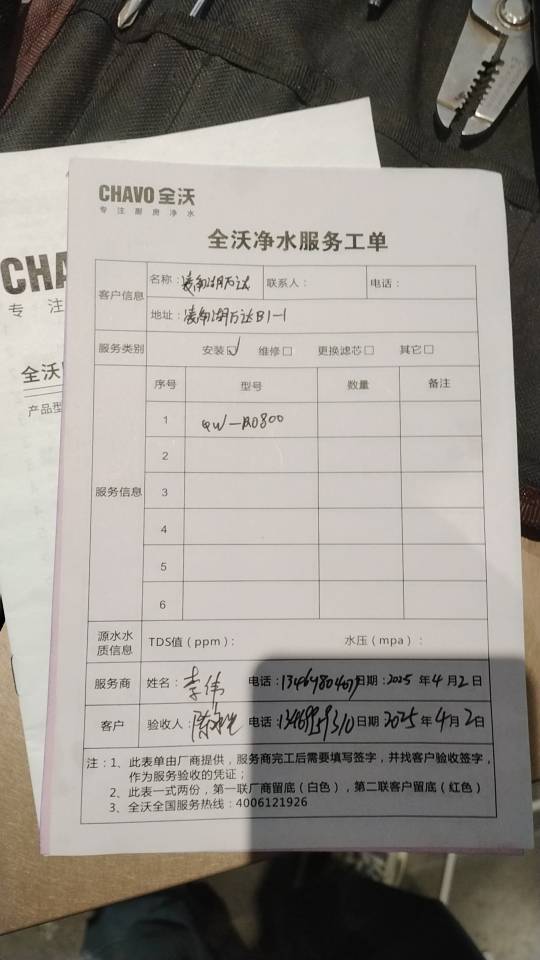 CHAVO 全沃
专注厨房净水
全沃净水服务工单
客户信息
名称：
联系人：
电话：
地址：
服务类别
安装☑ 维修□ 更换滤芯□ 其它□
服务信息
序号 型号 数量 备注
1 QW-RO800
2
3
4
5
6
源水水质信息
TDS值（ppm）：
水压（mpa）：
服务商
姓名：李伟
电话：
日期：2025年4月2日
客户
验收人：
电话：
日期 2025年4月2日
注：1、此表单由厂商提供，服务商完工后需要填写签字，并找客户验收签字，
作为服务验收的凭证；
2、此表一式两份，第一联厂商留底（白色），第二联客户留底（红色）
3、全沃全国服务热线：4006121926
CHA
专 注
全沃
产品型